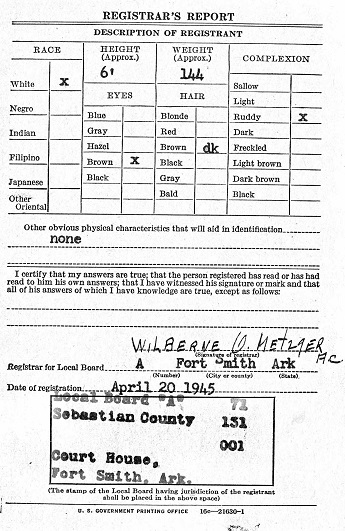 REGISTRAR'S REPORT
DESCRIPTION OF REGISTRANT
RACE HEIGHT (Approx.) WEIGHT (Approx.) COMPLEXION
6' 144
White x Sallow
EYES HAIR Light
Negro Blue Blonde Ruddy x
Indian Gray Red Dark
Hazel Brown dk Freckled
Filipino Brown x Black Light brown
Japanese Black Gray Dark brown
Other Oriental Bald Black
Other obvious physical characteristics that will aid in identification
none
I certify that my answers are true; that the person registered has read or has had
read to him his own answers; that I have witnessed his signature or mark and that
all of his answers of which I have knowledge are true, except as follows:
WILBERNE O. METZGER
(Signature of registrar)
Registrar for Local Board A Fort Smith Ark
(Number) (City or county) (State)
Date of registration April 20 1945
Local Board "A" 71
Sebastian County 131
001
Court House,
Fort Smith, Ark.
(The stamp of the Local Board having jurisdiction of the registrant
shall be placed in the above space)
U. S. GOVERNMENT PRINTING OFFICE 16c—21630-1